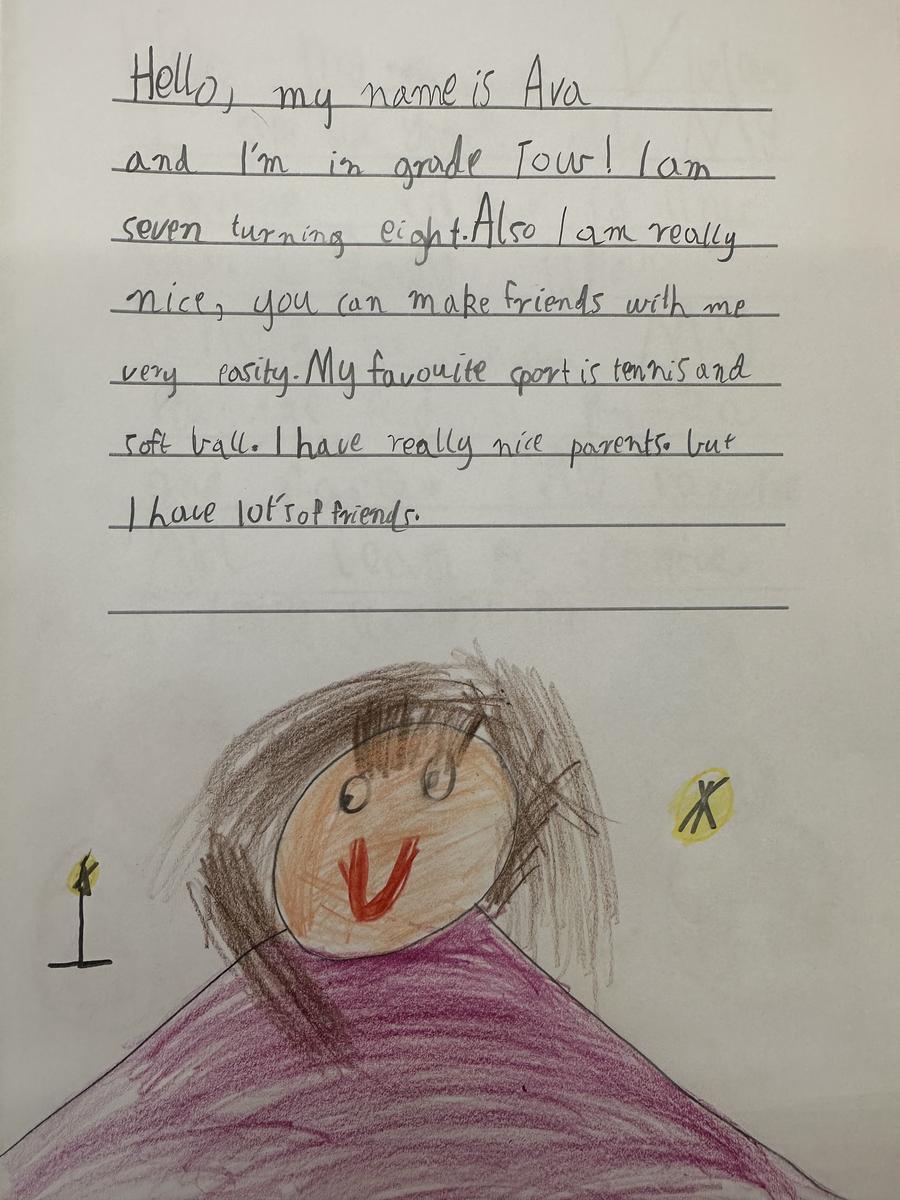 Hello, my name is Ava
and I'm in grade Tour! I am
seven turning eight. Also I am really
nice, you can make friends with me
very easity. My favouite sport is tennis and
soft ball. I have really nice parents. but
I have lot's of friends.